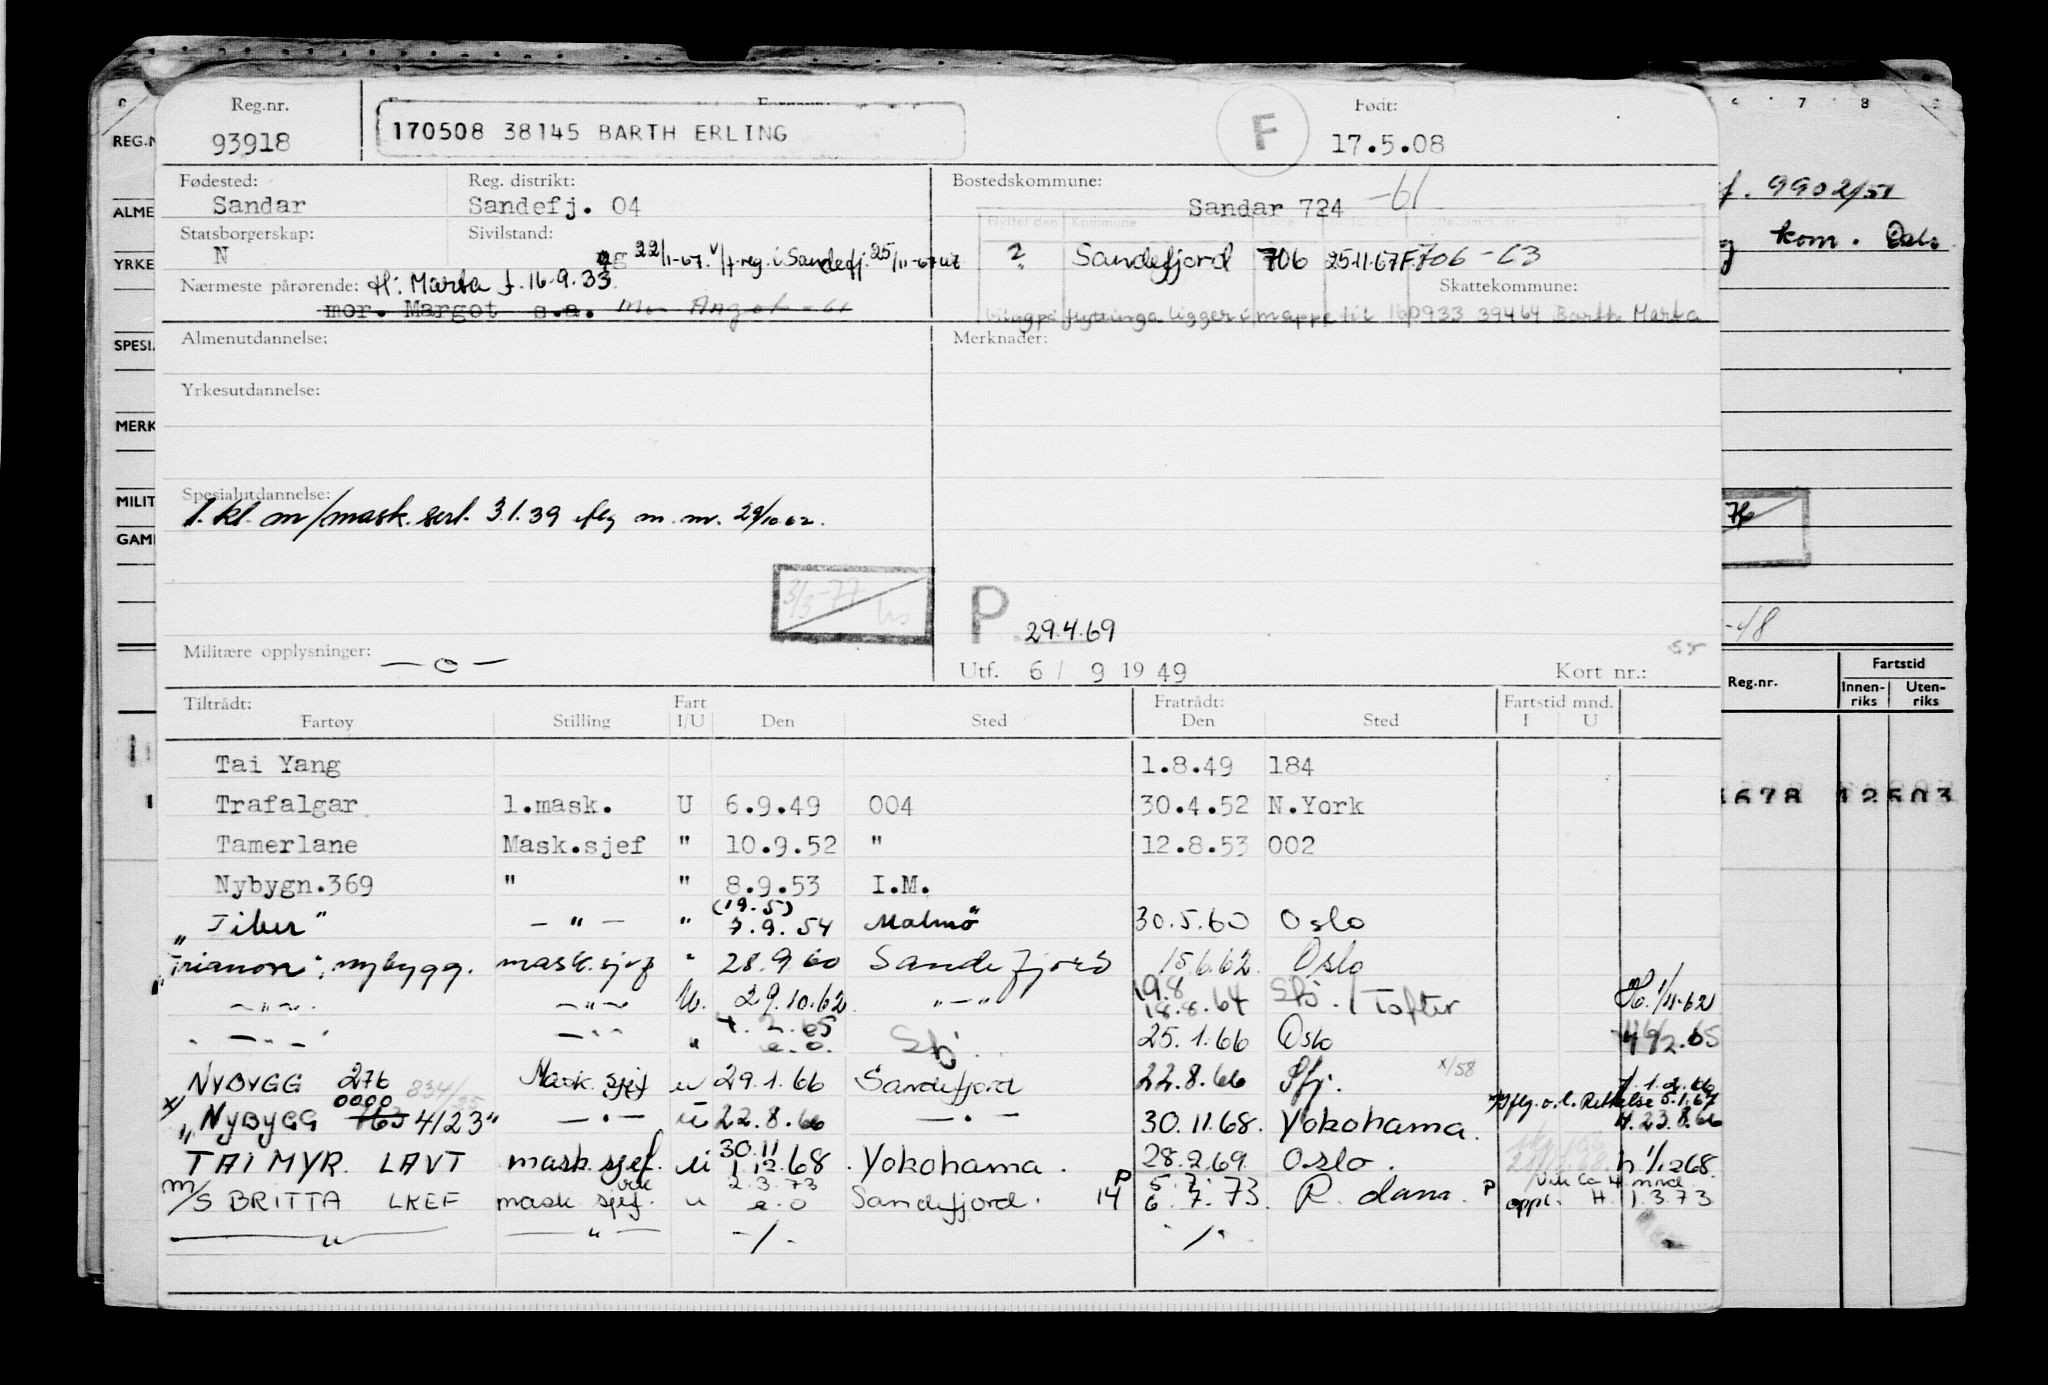 Reg.nr.
93918
170508 38145 BARTH ERLING
F
Født:
17.5.08
Fødested:
Sandar
Reg. distrikt:
Sandefj. 04
Bostedskommune:
Sandar 724 -61
Statsborgerskap:
N
Sivilstand:
g 22/11-67. v/f.reg. i Sandefj. 25/11-67
Flyttet den Kommune
? Sandefjord 706 25.11.67 F.706-63
Nærmeste pårørende: H: Marta f. 16.9.33
mor. Margot s.a.
Skattekommune:
flyttinga ligger i mappe til 160933 39464 Barth Marta
Almenutdannelse:
Merknader:
Yrkesutdannelse:
Spesialutdannelse:
1. kl. m/mask. sert. 3.1.39 flg m. m. 29/10 62.
3/3-77
P 29.4.69
Militære opplysninger: — o —
Utf. 6/ 9 1949
Kort nr.:
Tiltrådt:
Fartøy Stilling Fart I/U Den Sted
Fratrådt:
Den Sted
Fartstid mnd.
I U
Tai Yang 1.8.49 184
Trafalgar 1.mask. U 6.9.49 004 30.4.52 N.York
Tamerlane Mask.sjef " 10.9.52 " 12.8.53 002
Nybygn.369 " " 8.9.53 I.M.
(19.5)
„Tiber" — " — " 7.9.54 Malmö 30.5.60 Oslo
„Trianon", nybygg. mask.sjef " 28.9 60 Sandefjord 15.6.62. Oslo
— " — — " — U. 29.10.62 " — " 19.8 18.8.64 Sfj. / Tofter H. 1/11-62
— " — — " — " 4.2.65 e.o. Sfj. 25.1.66 Oslo
NYBYGG 276 834/35 Mask. sjef u 29.1.66 Sandefjord 22.8.66 Sfj. x/58 1.2.66
x/ „NYBYGG 0000 763 4123" — " — u 22.8.66 — " — 30.11.68. Yokohama. flg. o.l. Rettelse 5.1.67 H. 23.8.66
TAIMYR LAVT mask. sjef. u 30.11 1.12.68. Yokohama. 28.2.69. Oslo. h 1/12 68.
M/S BRITTA LKEF mask. sjef. vik u 2.3.73 e.o Sandefjord. 14 P 5.7. 6.7.73. R. dam. P vik Ca 4 mnd oppl. H. 1.3.73
— " — — " — -/- -/-
REG.N
ALME
YRKE
SPESI
MERK
MILIT
GAM
7 8 9
9902/51
kom. Oslo
-48
Reg.nr.
Fartstid
Innen-riks Uten-riks